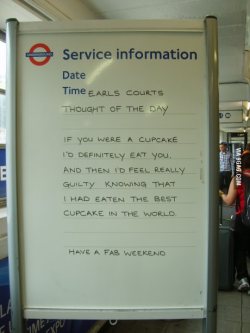 Service information
Date
Time EARLS COURTS
THOUGHT OF THE DAY
IF YOU WERE A CUPCAKE
I'D DEFINITELY EAT YOU.
AND THEN I'D FEEL REALLY
GUILTY KNOWING THAT
I HAD EATEN THE BEST
CUPCAKE IN THE WORLD.
HAVE A FAB WEEKEND
VIA 9GAG.COM